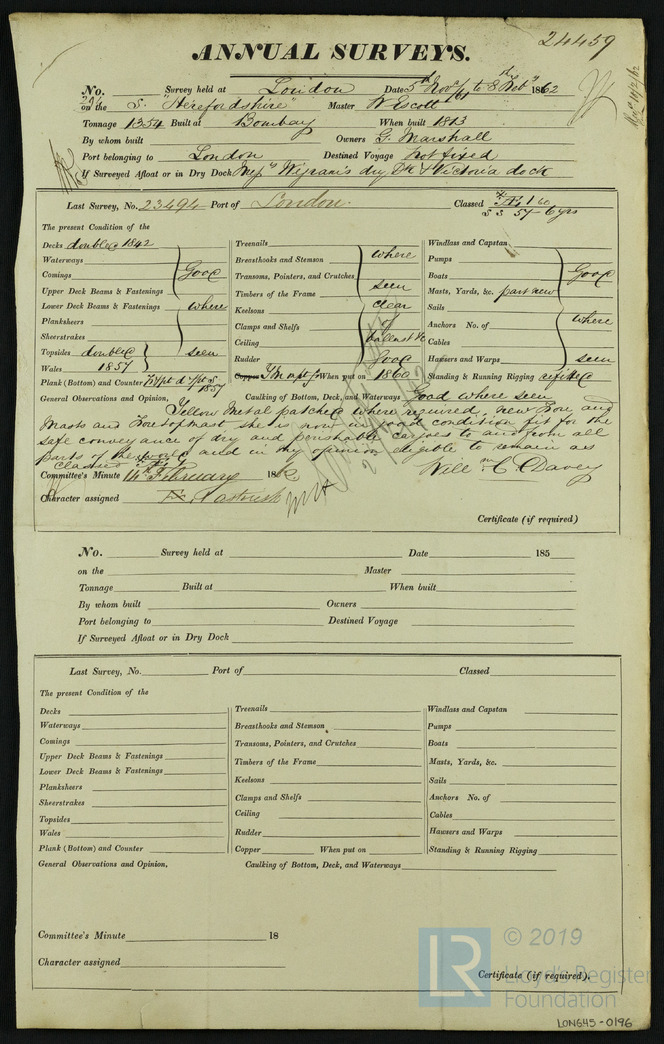 24459
ANNUAL SURVEYS.
No. Survey held at London Date 5th Novr/61 to 8th Feby 1862
on the S. "Herefordshire" Master W Scott
Tonnage 1354 Built at Bombay When built 1813
By whom built Owners G. Marshall
Port belonging to London Destined Voyage Not fixed
If Surveyed Afloat or in Dry Dock Messrs Wigram's dry Dk & Victoria dock
Last Survey, No. 23494 Port of London. Classed Æ 1 60
S 3 57-6 yrs
The present Condition of the
Decks doubled 1842
Waterways
Comings
Upper Deck Beams & Fastenings Good
Lower Deck Beams & Fastenings where
Planksheers
Sheerstrakes
Topsides doubled seen
Wales 1857
Plank (Bottom) and Counter 1857
Treenails
Breasthooks and Stemson where
Transoms, Pointers, and Crutches
Timbers of the Frame seen
Keelsons clear
Clamps and Shelfs of
Ceiling ballast &c
Rudder Good
Copper Y.M. When put on 1860
Windlass and Capstan
Pumps
Boats Good
Masts, Yards, &c. part new
Sails
Anchors No. of where
Cables
Hawsers and Warps seen
Standing & Running Rigging refitted
General Observations and Opinion, Caulking of Bottom, Deck, and Waterways Good where seen
Yellow Metal patched where required, new Fore and
Masts and Foretopmast, she is now in good condition fit for the
safe conveyance of dry and perishable cargoes to and from all
parts of the world and in my opinion eligible to remain as
classed Æ 1
Will m C Davey
Committee's Minute 14th February 1862
Character assigned Æ 1
Certificate (if required)
No. Survey held at Date 185
on the Master
Tonnage Built at When built
By whom built Owners
Port belonging to Destined Voyage
If Surveyed Afloat or in Dry Dock
Last Survey, No. Port of Classed
The present Condition of the
Decks
Waterways
Comings
Upper Deck Beams & Fastenings
Lower Deck Beams & Fastenings
Planksheers
Sheerstrakes
Topsides
Wales
Plank (Bottom) and Counter
Treenails
Breasthooks and Stemson
Transoms, Pointers, and Crutches
Timbers of the Frame
Keelsons
Clamps and Shelfs
Ceiling
Rudder
Copper When put on
Windlass and Capstan
Pumps
Boats
Masts, Yards, &c.
Sails
Anchors No. of
Cables
Hawsers and Warps
Standing & Running Rigging
General Observations and Opinion. Caulking of Bottom, Deck, and Waterways
Committee's Minute 18
Character assigned
Certificate (if required).
LR © 2019
Lloyd's Register
Foundation
LON645-0196